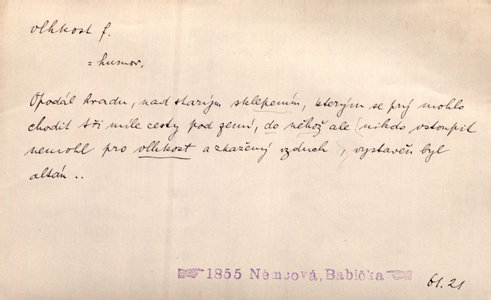 vlhkost f.
= humor,
Opodál hradu, nad starým sklepením, kterým se prý mohlo
chodit tři míle cesty pod zemí, do něhož ale nikdo vstoupit
nemohl pro vlhkost a zkažený vzduch, vystavěn byl
altán ..
1855 Němcová, Babička
61.21